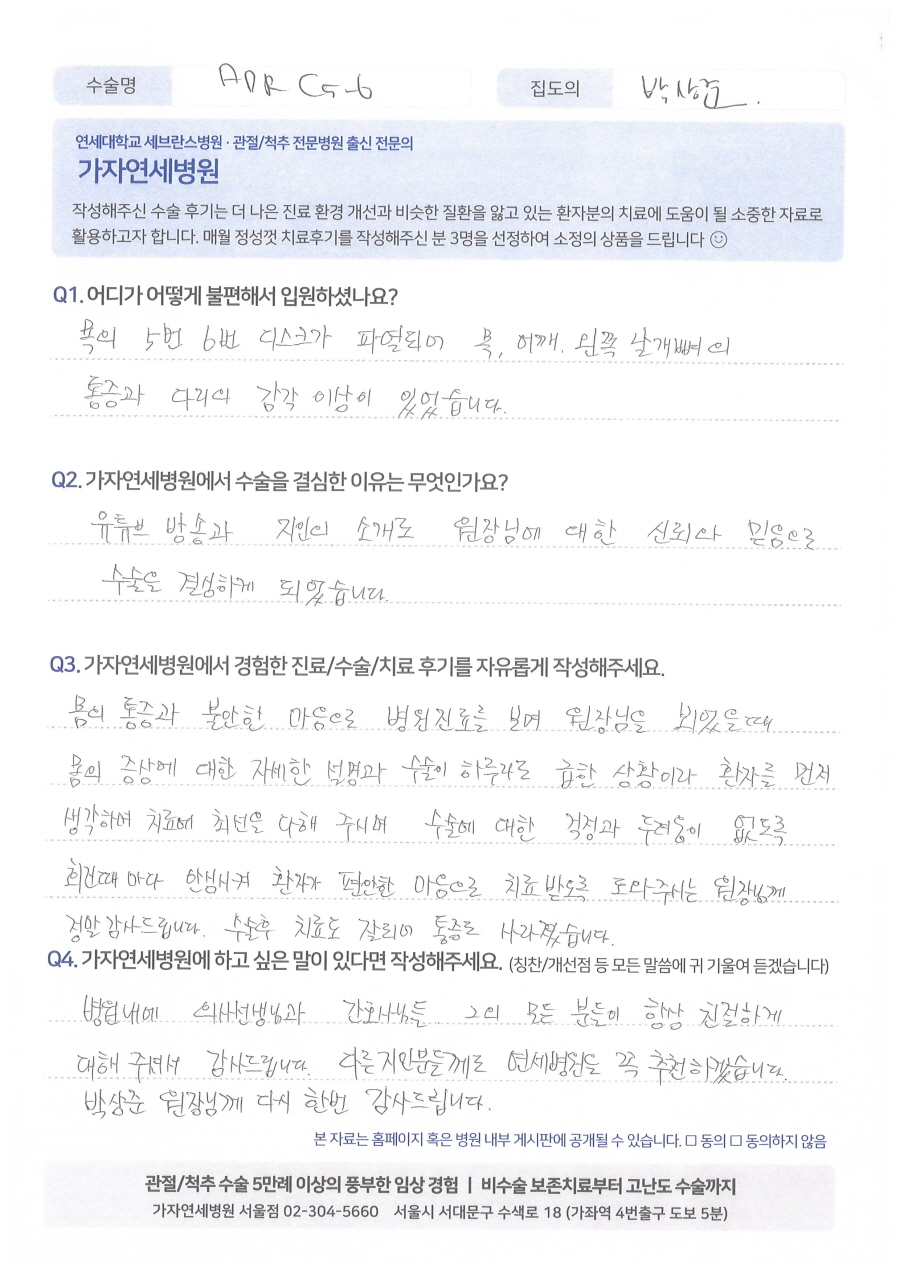 수술명 ADR C5-6 집도의 박상준.
연세대학교 세브란스병원 · 관절/척추 전문병원 출신 전문의
가자연세병원
작성해주신 수술 후기는 더 나은 진료 환경 개선과 비슷한 질환을 앓고 있는 환자분의 치료에 도움이 될 소중한 자료로
활용하고자 합니다. 매월 정성껏 치료후기를 작성해주신 분 3명을 선정하여 소정의 상품을 드립니다 ☺
Q1. 어디가 어떻게 불편해서 입원하셨나요?
목의 5번 6번 디스크가 파열되어 목, 어깨. 왼쪽 날개뼈의
통증과 다리의 감각 이상이 있었습니다.
Q2. 가자연세병원에서 수술을 결심한 이유는 무엇인가요?
유튜브 방송과 지인의 소개로 원장님에 대한 신뢰와 믿음으로
수술을 결심하게 되었습니다.
Q3. 가자연세병원에서 경험한 진료/수술/치료 후기를 자유롭게 작성해주세요.
몸의 통증과 불안한 마음으로 병원진료를 보며 원장님을 뵈었을때
몸의 증상에 대한 자세한 설명과 수술이 하루라도 급한 상황이라 환자를 먼저
생각하여 치료에 최선을 다해 주시며 수술에 대한 걱정과 두려움이 없도록
회진때 마다 안심시켜 환자가 편안한 마음으로 치료 받도록 도와주시는 원장님께
정말 감사드립니다. 수술후 치료도 잘되어 통증도 사라졌습니다.
Q4. 가자연세병원에 하고 싶은 말이 있다면 작성해주세요. (칭찬/개선점 등 모든 말씀에 귀 기울여 듣겠습니다)
병원내에 의사선생님과 간호사님들 그외 모든 분들이 항상 친절하게
대해 주셔서 감사드립니다. 다른지인분들께도 연세병원을 꼭 추천하겠습니다.
박상준 원장님께 다시 한번 감사드립니다.
본 자료는 홈페이지 혹은 병원 내부 게시판에 공개될 수 있습니다. □ 동의 □ 동의하지 않음
관절/척추 수술 5만례 이상의 풍부한 임상 경험 | 비수술 보존치료부터 고난도 수술까지
가자연세병원 서울점 02-304-5660 서울시 서대문구 수색로 18 (가좌역 4번출구 도보 5분)